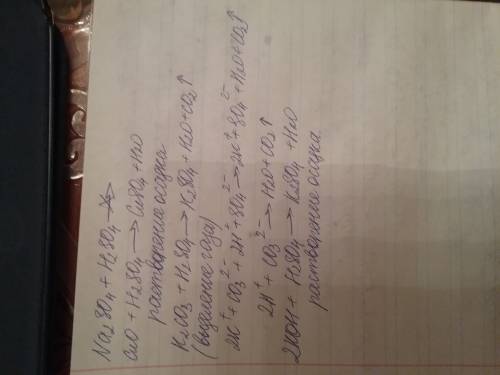 Na2SO4 + H2SO4 ↛
CuO + H2SO4 → CuSO4 + H2O
растворение осадка
K2CO3 + H2SO4 → K2SO4 + H2O + CO2↑
(выделение газа)
2K⁺ + CO3²⁻ + 2H⁺ + SO4²⁻ → 2K⁺ + SO4²⁻ + H2O + CO2↑
2H⁺ + CO3²⁻ → H2O + CO2↑
2KOH + H2SO4 → K2SO4 + H2O
растворение осадка